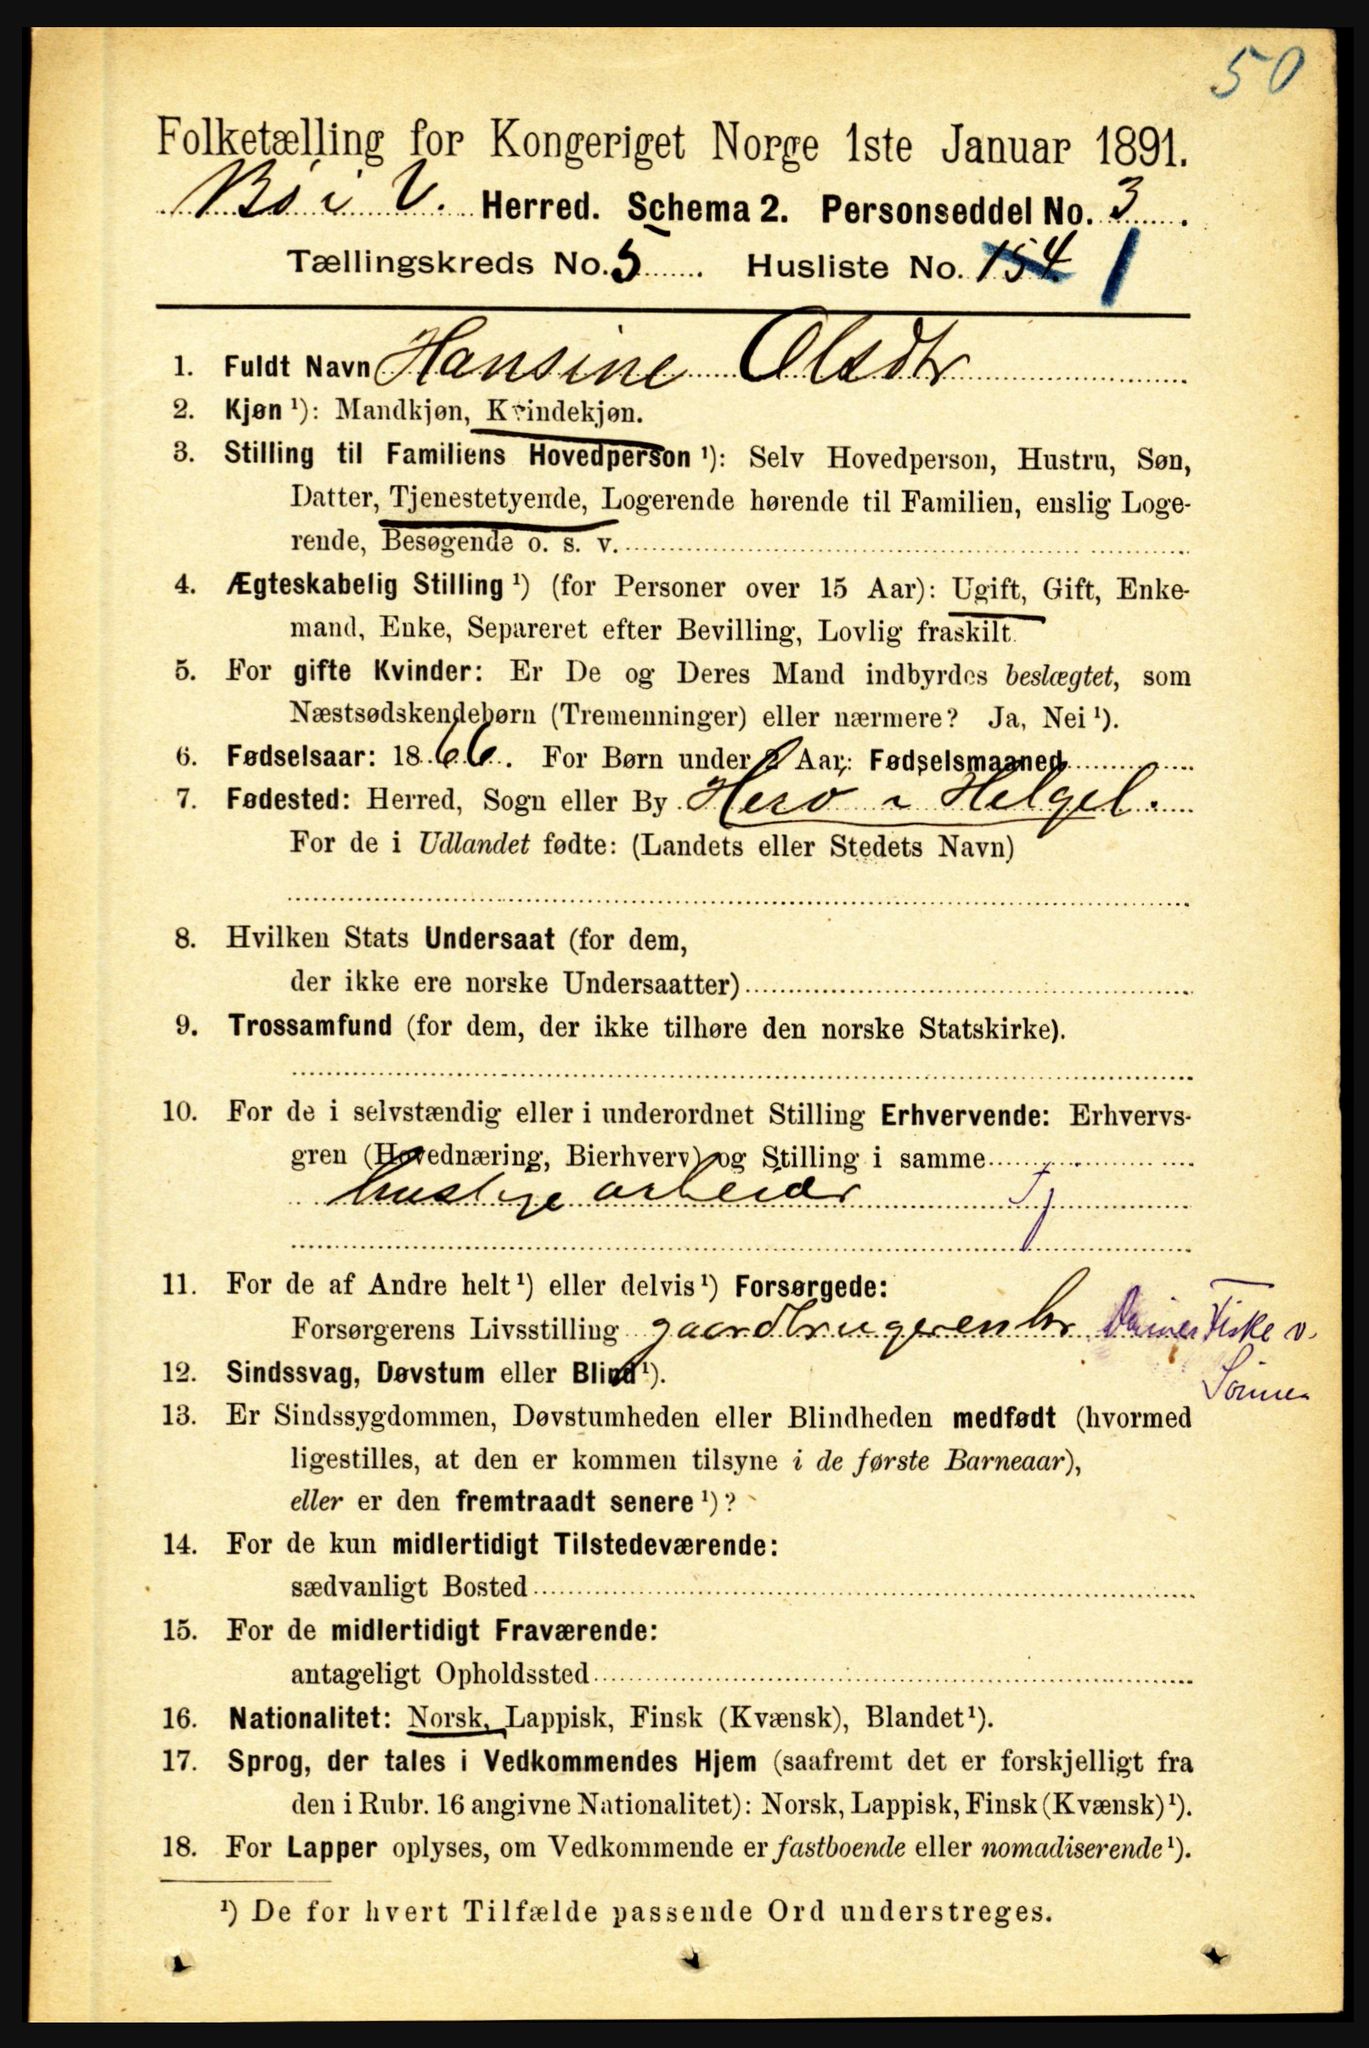 50
Folketælling for Kongeriget Norge 1ste Januar 1891.
Bø i V. Herred. Schema 2. Personseddel No. 3.
Tællingskreds No. 5. Husliste No. 154 1
1. Fuldt Navn Hansine Olsdtr
2. Kjøn ¹): Mandkjøn, Kvindekjøn.
3. Stilling til Familiens Hovedperson ¹): Selv Hovedperson, Hustru, Søn,
Datter, Tjenestetyende, Logerende hørende til Familien, enslig Loge-
rende, Besøgende o. s. v.
4. Ægteskabelig Stilling ¹) (for Personer over 15 Aar): Ugift, Gift, Enke-
mand, Enke, Separeret efter Bevilling, Lovlig fraskilt.
5. For gifte Kvinder: Er De og Deres Mand indbyrdes beslægtet, som
Næstsødskendebørn (Tremenninger) eller nærmere? Ja, Nei ¹).
6. Fødselsaar: 1866. For Børn under 2 Aar: Fødselsmaaned
7. Fødested: Herred, Sogn eller By Herø i Helgel.
For de i Udlandet fødte: (Landets eller Stedets Navn)
8. Hvilken Stats Undersaat (for dem,
der ikke ere norske Undersaatter)
9. Trossamfund (for dem, der ikke tilhøre den norske Statskirke).
10. For de i selvstændig eller i underordnet Stilling Erhvervende: Erhvervs-
gren (Hovednæring, Bierhverv) og Stilling i samme
huslige arbeider Tj
11. For de af Andre helt ¹) eller delvis ¹) Forsørgede:
Forsørgerens Livsstilling gaardbrugeren Fiske v.
12. Sindssvag, Døvstum eller Blind ¹).
13. Er Sindssygdommen, Døvstumheden eller Blindheden medfødt (hvormed
ligestilles, at den er kommen tilsyne i de første Barneaar),
eller er den fremtraadt senere ¹)?
14. For de kun midlertidigt Tilstedeværende:
sædvanligt Bosted
15. For de midlertidigt Fraværende:
antageligt Opholdssted
16. Nationalitet: Norsk, Lappisk, Finsk (Kvænsk), Blandet ¹).
17. Sprog, der tales i Vedkommendes Hjem (saafremt det er forskjelligt fra
den i Rubr. 16 angivne Nationalitet): Norsk, Lappisk, Finsk (Kvænsk) ¹).
18. For Lapper oplyses, om Vedkommende er fastboende eller nomadiserende ¹).
¹) De for hvert Tilfælde passende Ord understreges.